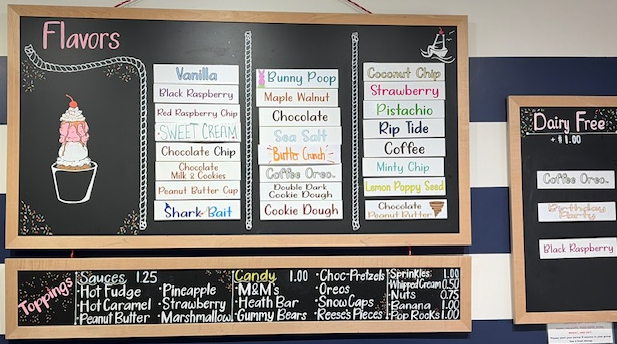 Flavors
Vanilla
Black Raspberry
Red Raspberry Chip
SWEET CREAM
Chocolate Chip
Chocolate
Milk & Cookies
Peanut Butter Cup
Shark Bait
Bunny Poop
Maple Walnut
Chocolate
Sea Salt
Butter Crunch
Coffee Oreo
Double Dark
Cookie Dough
Cookie Dough
Coconut Chip
Strawberry
Pistachio
Rip Tide
Coffee
Minty Chip
Lemon Poppy Seed
Chocolate
Peanut Butter
Dairy Free
+ $1.00
Coffee Oreo
Birthday
Party
Black Raspberry
Toppings
Sauces 1.25
•Hot Fudge
•Hot Caramel
•Peanut Butter
•Pineapple
•Strawberry
•Marshmallow
Candy 1.00
•M&M's
•Heath Bar
•Gummy Bears
•Choc-Pretzels
•Oreos
•Snow Caps
•Reese's Pieces
Sprinkles 1.00
Whipped Cream 0.50
Nuts 0.75
Banana 1.00
Pop Rocks 1.00